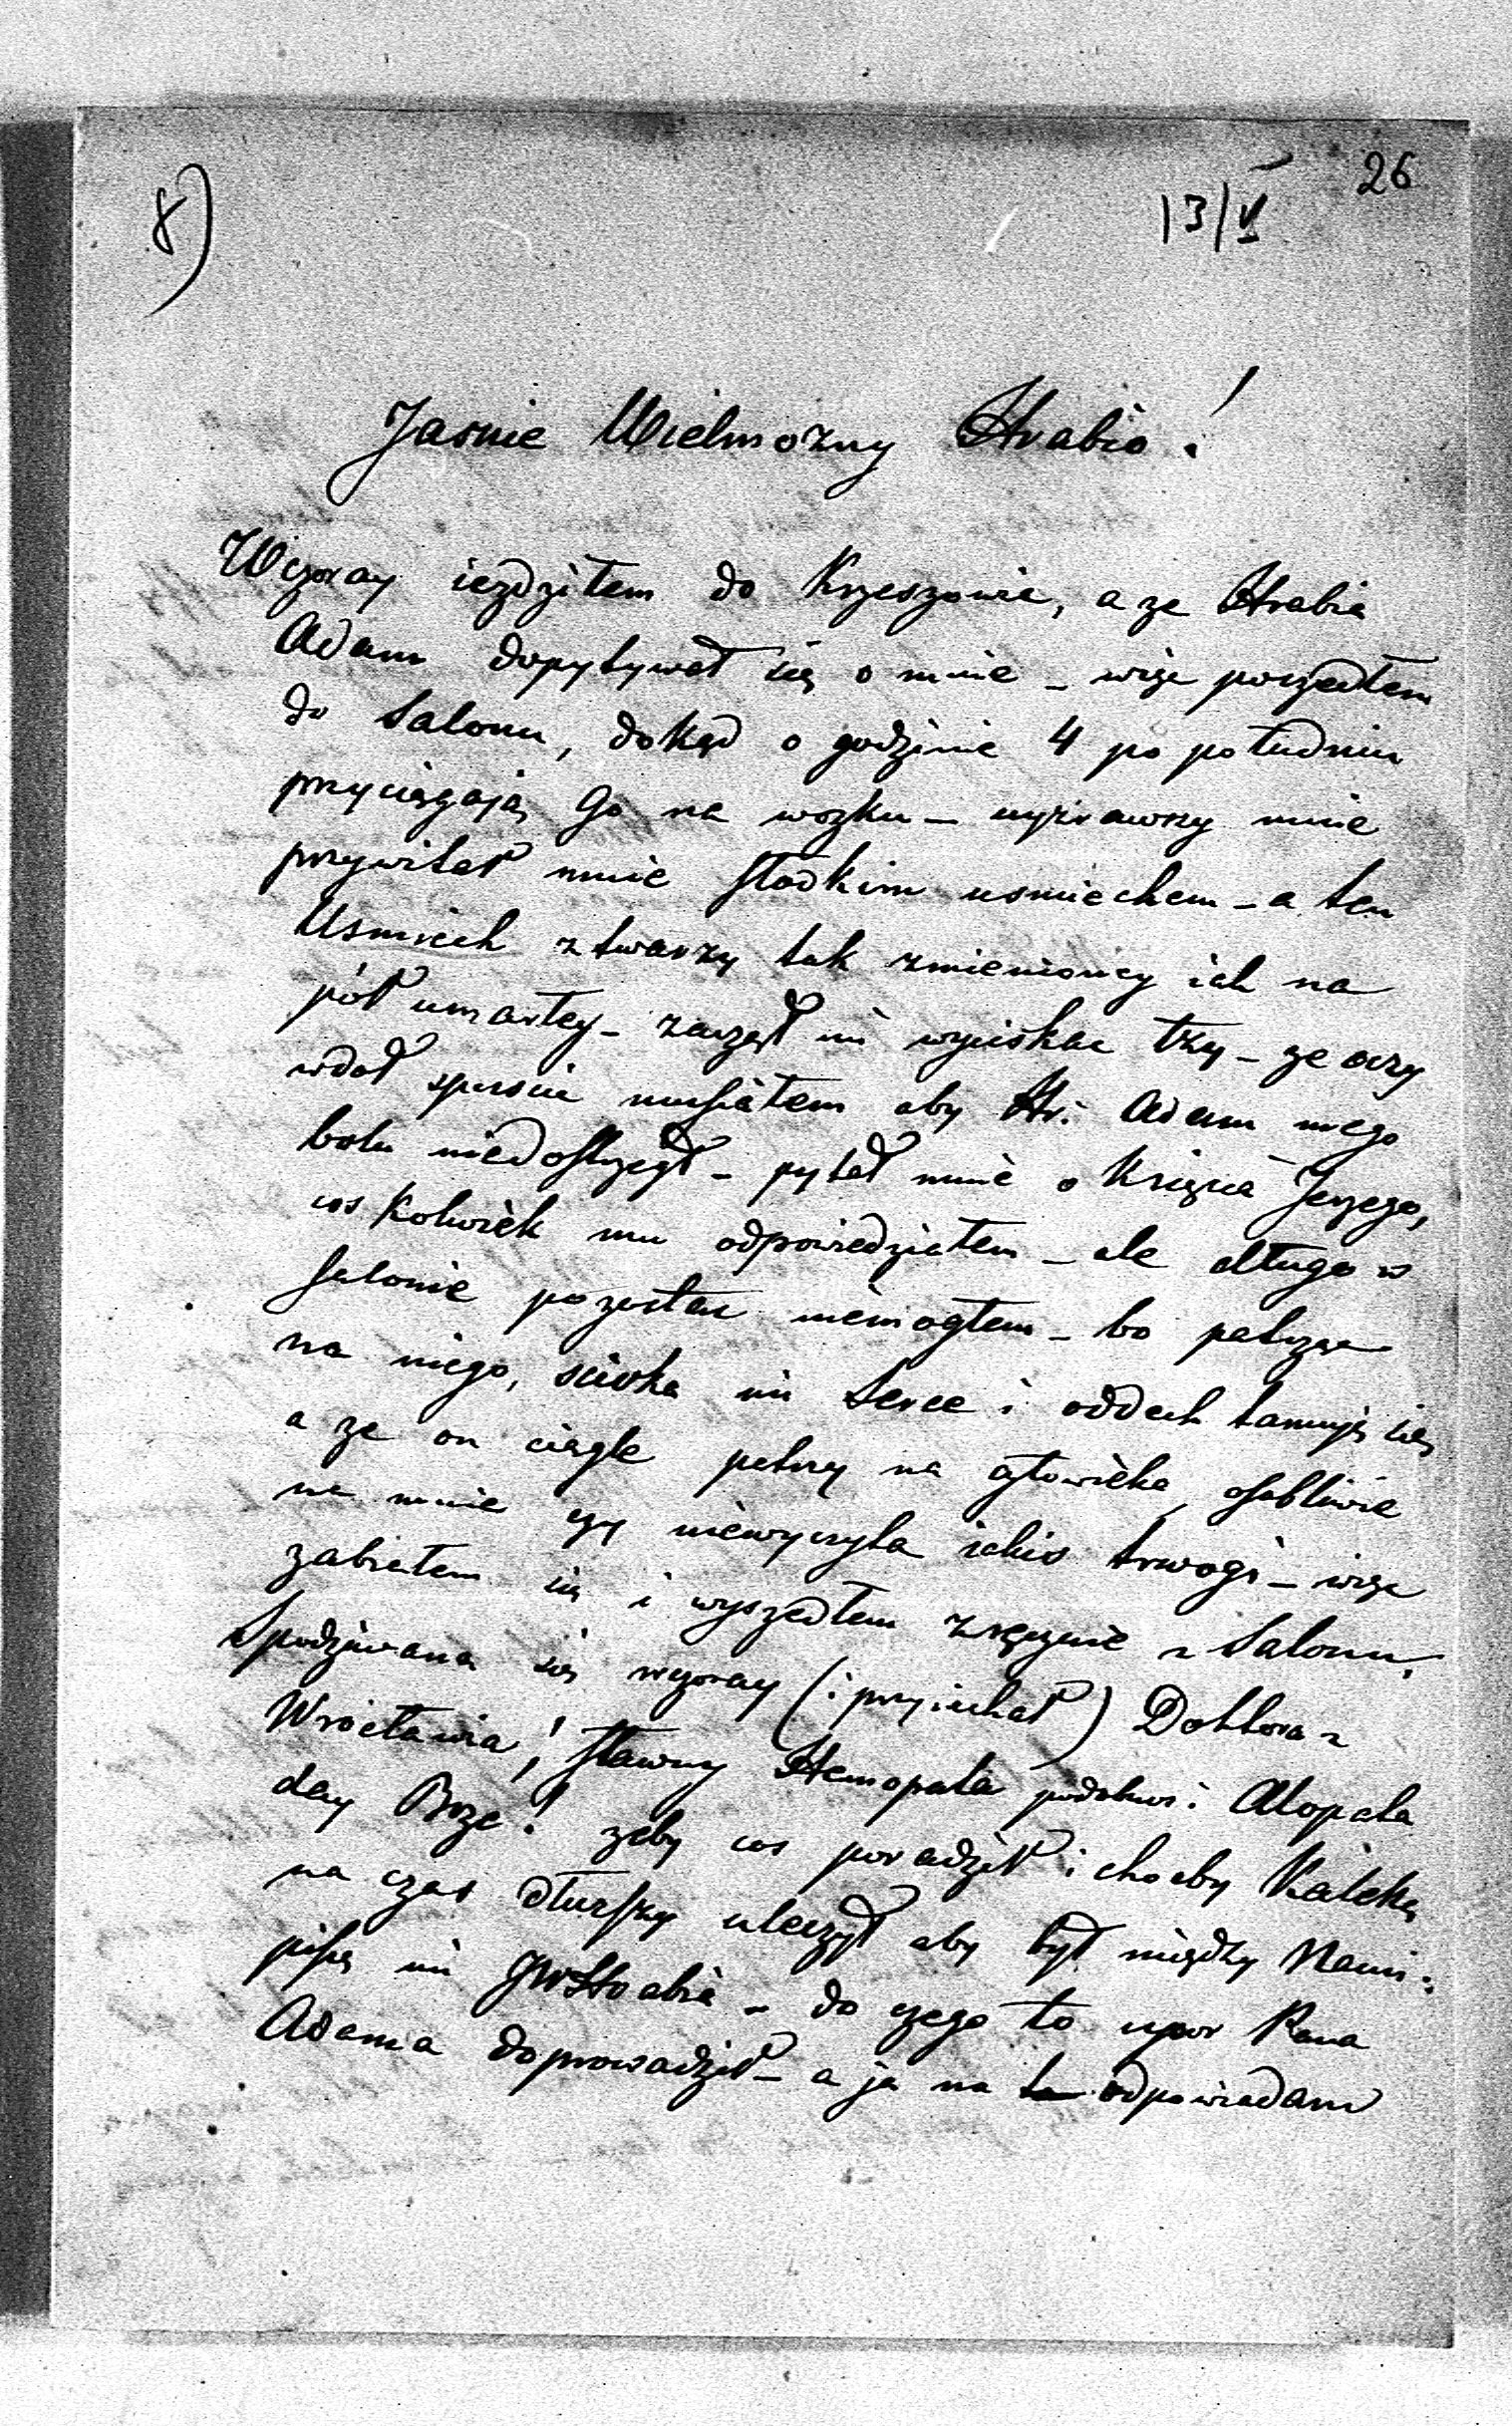 26
8)
13/VI
Jasnie Wielmozny Hrabio!
Wczoray iezdziłem do Krzeszowic, a ze Hrabia
Adam dopytywał się o mnie – więc poszedłem
do Salonu, dokąd o godzinie 4 po południu
przyciągają Go na wozku – uyżrawszy mnie
przywitał mnie słodkim usmiechem – a ten
Usmiech z twarzy tak zmienioney iak na
pół umarłey – zaczął mi wyciskac łzy – ze oczy
wdoł spuscic musiałem aby Hr: Adam mego
bolu niedostrzegł – pytał mnie o Księcia Jerzego,
coskolwiek mu odpowiedziałem – ale długo w
salonie pozostac niemogłem – bo patrząc
na niego, sciska mi serce i oddech tamuje się
a ze on ciągle patrzy na człowieka, osobliwie
na mnie czy niewyczyta iakis trwogi – więc
zabrałem się i wyszedłem zręcznie z Salonu.
Spodziewana się wczoray (i przyiechał) Doktora z
Wrocławia, sławny Hemopata podobno i Alopata
day Boze! zeby cos poradził i chocby Kaleką
na czas dłuzszy uleczył aby był między Nami:
pisze mi JWHrabia – do czego to upor Pana
Adama doprowadził – a ja na to odpowiadam